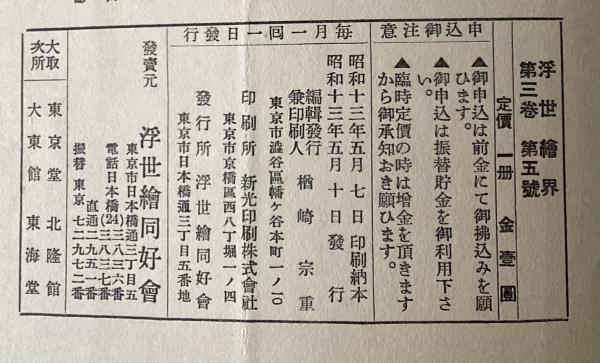 浮世繪界
第三卷 第五號
定價 一册 金壹圓
申込御注意
▲御申込は前金にて御拂込みを願
ひます。
▲御申込は振替貯金を御利用下さ
い。
▲臨時定價の時は增金を頂きます
から御承知おき願ひます。
每月一回一日發行
昭和十三年五月七日印刷納本
昭和十三年五月十日發行
編輯發行
兼印刷人 楢崎宗重
東京市澁谷區幡ヶ谷本町一ノ一〇
印刷所 新光印刷株式會社
東京市京橋區西八丁堀一ノ四
發行所 浮世繪同好會
東京市日本橋通三丁目五番地
發賣元 浮世繪同好會
東京市日本橋通三丁目五
電話日本橋(24)三八三六番
三八三七番
直通二九五一番
振替東京七二九七二番
大取
次所
東京堂 北隆館
大東館 東海堂